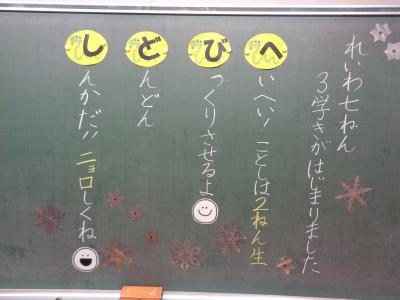 れいわ七ねん
3学きがはじまりました
へいへい！ことしは2ねん生
びっくりさせるよ
どんどん
しんかだ!!ニョロしくね